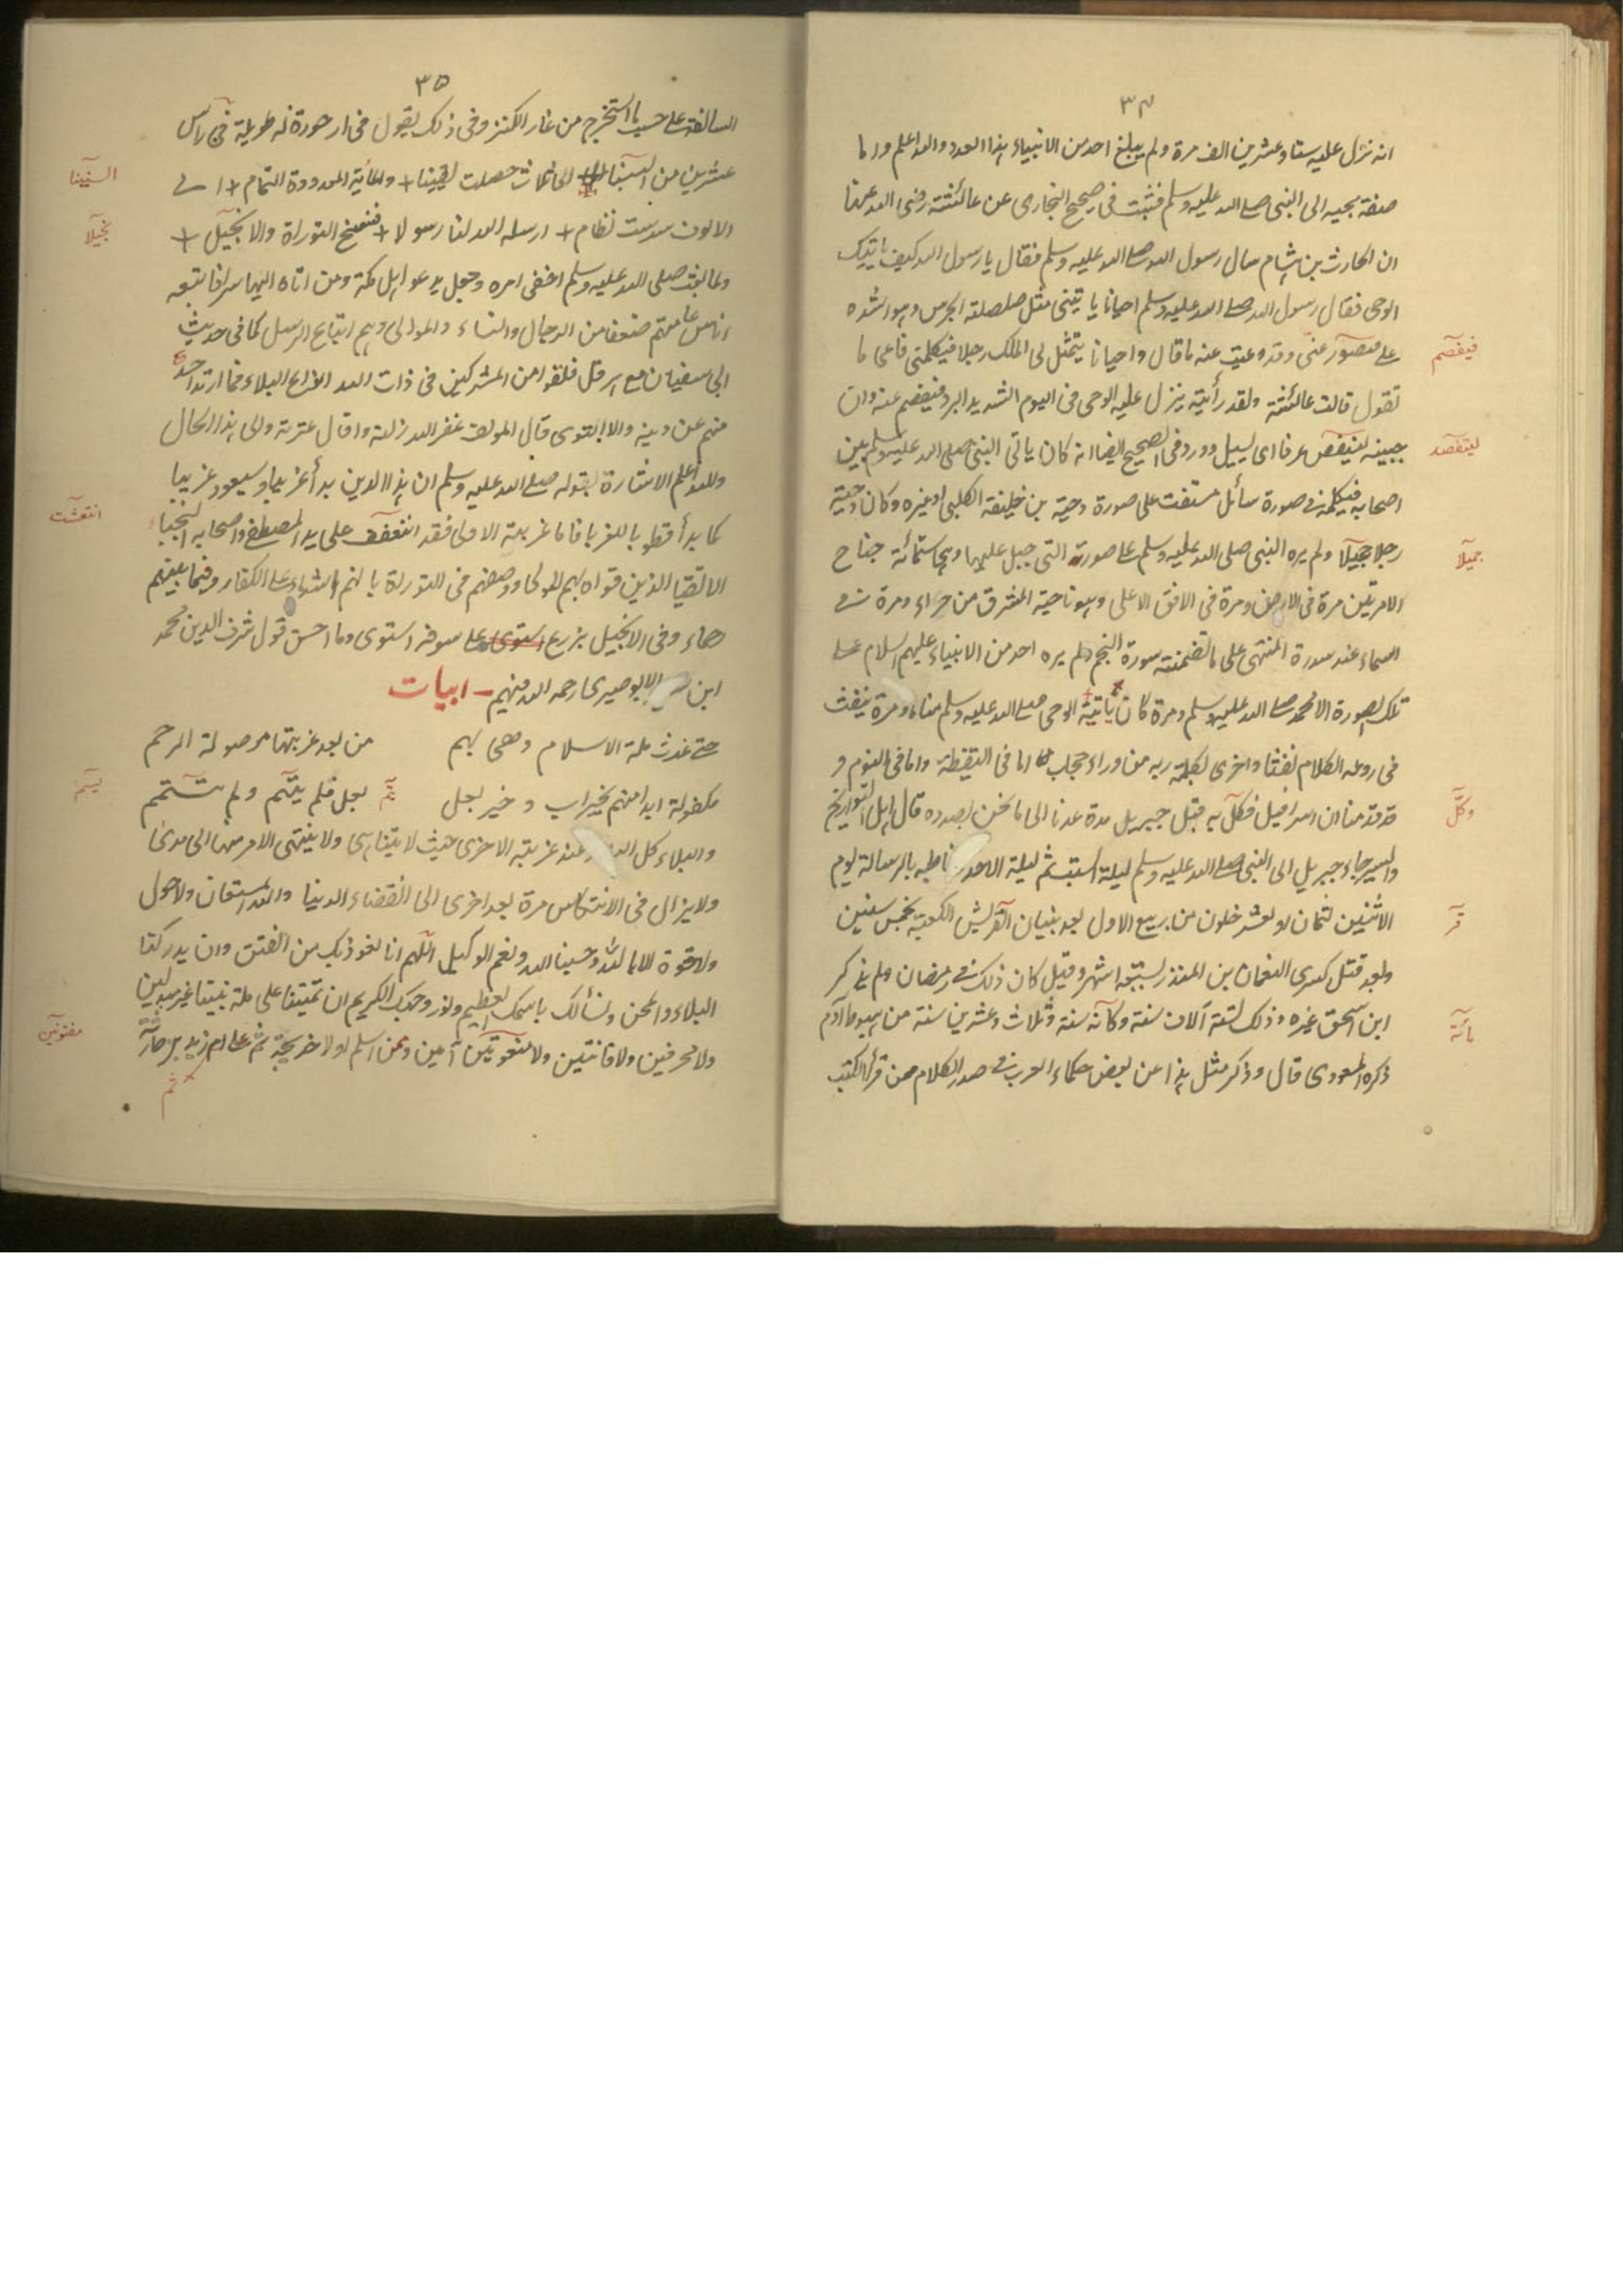 ٣٤
انه نزل عليه ستا وعشرين الف مرة ولم يبلغ احد من الانبياء هذا العدد والله اعلم واما
صفة مجيه الى النبى صلے الله عليه وسلم فثبت فى صحيح البخارى عن عائشة رضى الله عنها
ان الحارث بن هشام سال رسول الله صلے الله عليه وسلم فقال يا رسول الله كيف ياتيك
الوحى فقال رسول الله صلے الله عليه وسلم احيانا ياتينى مثل صلصلة الجرس وهو اشده
علے فيصور عنى وقد وعيت عنه ما قال واحيانا يتمثل لى الملك رجلا فيكلمنى فاعى ما
فيفصم
تقول قالت عائشة ولقد رأيته ينزل عليه الوحى فى اليوم الشديد البرد فيفصم عنه وان
جبينه ليتفص عرقا اى ليسيل وورد فى الصحيح ايضا انه كان ياتى النبى صلى الله عليه وسلم بين
ليتفصد
اصحابه فيكلمه فے صورة سائل مستفت على صورة دحية بن خليفة الكلبى او غيره وكان دحية
رجلا جميلا ولم يره النبى صلى الله عليه وسلم علے صورته التى جبل عليها وبها ستمائة جناح
جميلا
الا مرتين مرة فى الارض ومرة فى الافق الاعلى وهو ناحية المشرق من حراء ومرة فے
السماء عند سدرة المنتهى على ما تضمنته سورة النجم ولم يره احد من الانبياء عليهم السلام علے
تلك الصورة الا محمد صلے الله عليه وسلم ومرة كان ياتيه الوحى صلے الله عليه وسلم مناما ومرة ينفث
فى روعه الكلام نفثا واخرى يكلمه ربه من وراء حجاب اما فى اليقظة واما فى النوم و
قد قدمنا ان اسرافيل فكل به قبل جبريل مدة عدنا الى ما نحن بصدده قال اهل التواريخ
وكل
والسير جاء جبريل الى النبى صلے الله عليه وسلم ليلة السبت ثم ليلة الاحد خاطبه بالرسالة يوم
الاثنين لثمان او لعشر خلون من ربيع الاول بعد بنيان القريش الكعبة بخمس سنين
قر
وبعد قتل كسرى النعمان بن المنذر بسبعة اشهر وقيل كان ذلك فے رمضان ولم يذكر
ابن اسحق غيره وذلك لستة آلاف سنة وكانه سنة وثلاث وعشرين سنة من هبوط آدم
مائة
ذكره المسعودى قال وذكر مثل هذا عن بعض حكماء العرب فے صدر الكلام ممن قرأ الكتب
٣٥
السالفة علے حسب ما استخرج من غار الكنز وفى ذلك يقول فى ارجوزة له طويلة فى رأس
عشرين من السنينا الى ثلاث حصلت يقينا + والمائة المعدودة التمام + الے
السنينا
الالوف سدست نظام + ارسله الله لنا رسولا + فنسخ التوراة والانجيل +
نجيلا
ولما بعث صلى الله عليه وسلم اخفى امره وجعل يدعو اهل مكة ومن اتاه اليها سرا فاتبعه
اناس عامتهم ضعفا من الرجال والنساء والموالى وهم اتباع الرسل كما فى حديث
ابى سفيان مع هرقل فلقوا من المشركين فى ذات الله انواع البلاء فما ارتد احد
منهم عن دينه ولا التوى قال المولف غفر الله زلته واقال عثرته والى هذا الحال
والله اعلم الاشارة بقوله صلے الله عليه وسلم ان هذا الدين بدأ غريبا وسيعود غريبا
كما بدأ فطوبا للغربا فاما غربته الاولى فقد انتعفف على يد المصطفے واصحابه النجباء
انتعشت
الاتقيا الذين قواه بهم المولى ووصفهم فى التوراة بانهم اشداء علے الكفار وفيما بينهم
رحماء وفى الانجيل بزرع استوى علے سوقه استوى وما احسن قول شرف الدين محمد
ابن الابوصيرى رحمه الله فيهم ـ ابيات
حتے غدت ملة الاسلام وهى بهم من بعد غربتها موصولة الرحم
مكفولة ابدا منهم بخير اب وخير بعل بعل فلم يتئم ولم تئم
تيتم
والبلاء كل البلاء عند غربته الاخرى حيث لا يتناهى ولا ينتهى الامر منها الى مدى
ولا يزال فى الانتكاس مرة بعد اخرى الى انقضاء الدنيا والله المستعان ولا حول
ولا قوة الا بالله وحسبنا الله ونعم الوكيل اللهم انا نعوذ بك من الفتن وان يدركنا
البلاء والمحن ونسألك باسمك العظيم ونور وجهك الكريم ان تميتنا على ملة نبينا غير مبدلين
ولا محرفين ولا فاتنين ولا آمين وممن اسلم اولا خديجة ثم علے ام زيد بن حارثة
مفتونين
ثم